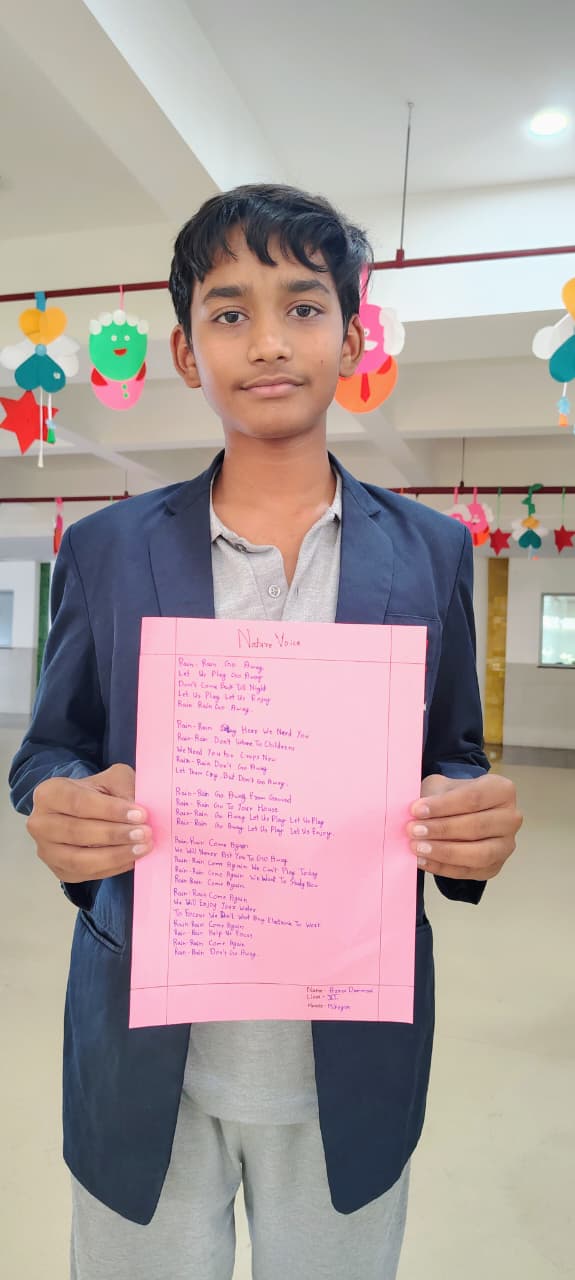 Nature Voice
Rain-Rain Go Away.
Let Us Play Go Away
Don't Come Back Till Night
Let Us Play Let Us Enjoy
Rain Rain Go Away.
Rain-Rain Stay Here We Need You
Rain-Rain Don't Listen To Childrens
We Need You For Crops Now
Rain-Rain Don't Go Away
Let Them Cry, But Don't Go Away.
Rain-Rain Go Away From Ground
Rain-Rain Go To Your House
Rain-Rain Go Away Let Us Play Let Us Play
Rain-Rain Go Away Let Us Play Let Us Enjoy.
Rain-Rain Come Again
We Will Never Ask You To Go Away
Rain-Rain Come Again We Can't Play Today
Rain-Rain Come Again We Want To Study Now
Rain-Rain Come Again
Rain-Rain Come Again
We Will Enjoy Your Water
To Focus We Don't Want Any To
Rain-Rain Come Again
Rain-Rain Help Us Focus
Rain-Rain Come Again
Rain-Rain Don't Go Away.
Name-
Class- VI
House-